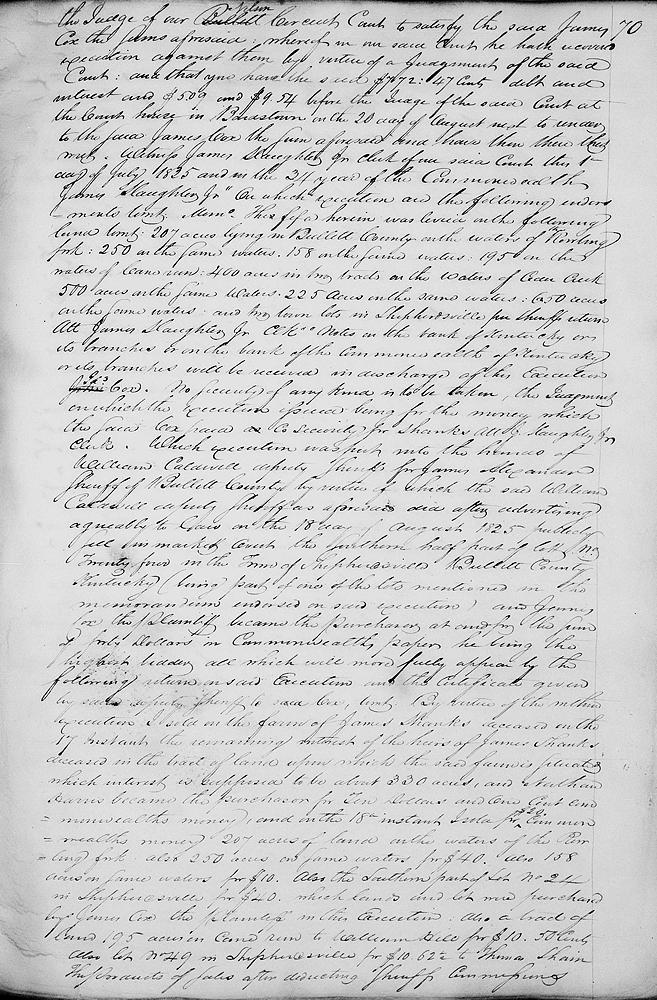 70
the Judge of our Bullitt Nelson Circuit Court to satisfy the said James
Cox the sums aforesaid: whereof in our said Court he hath recovered
execution against them by virtue of a Judgment of the said
Court: and that you have the said $772:47 Cents debt and
interest and $5.00 and $9.54 before the Judge of the said Court at
the Court house in Bardstown on the 20 day of August next to render
to the said James Cox the sum aforesaid and have then there this
writ. Witness James Slaughter Jr Clerk of our said Court this 1st
day of July 1825 and in the 34 year of the Commonwealth
James Slaughter Jr" On which execution are the following endors
ments towit. Memo. This fifa herein was levied on the following
land towit: 207 acres lying in Bullitt County on the waters of Rowling
fork: 250 on the same waters. 158 on the same waters: 195 on the
waters of Cane run: 400 acres in two tracts on the waters of Cedar Creek
500 acres on the same waters. 225 acres on the same waters: 650 acres
on the same waters: and two town lots in Shepherdsville per Sheriffs return
Att James Slaughter Jr Clk" Notes on the bank of Kentucky or
its branches or on the bank of the Commonwealth of Kentucky
or its branches will be received in discharge of the Execution
Jas Cox. No security of any kind is to be taken, the Judgment
on which the execution issued being for the money which
the said Cox paid as Co security for Shanks Att J. Slaughter Jr
Clerk. Which execution was put into the hands of
William Caldwell deputy Sheriff for James Alexander
Sheriff of Bullitt County by virtue of which the said William
Caldwell deputy Sheriff as aforesaid did after advertising
agreeably to Law on the 18 day of August 1825 publicly
sell in market Court the Southern half part of lot No
Twenty four in the Town of Shepherdsville Bullitt County
Kentucky (being part of one of the lots mentioned in the
memorandum endorsed on said execution) and James
Cox the Plaintiff became the purchaser at and for the sum
of forty Dollars in Commonwealths paper he being the
highest bidder all which will more fully appear by the
following return on said Execution and the Certificate given
by said deputy Sheriff to said Cox, towit. By virtue of the within
execution I sold on the farm of James Shanks deceased on the
17 Instant the remaining interest of the heirs of James Shanks
deceased in the tract of land upon which the said farm is situated
which interest is supposed to be about 330 acres, and Nathan
Harris became the purchaser for Ten Dollars and One Cent Com
= monwealths money, and on the 18th instant I sold for $20 Common
= wealths money 207 acres of land on the waters of the Row
= ling fork: also 250 acres on same waters for $40. also 158
acres on same waters for $10. Also the Southern part of Lot No 24
in Shepherdsville for $40. which lands and lot were purchased
by James Cox the plaintiff in this Execution: also a tract of
land 195 acres on Cane run to William Hill for $10. 50 Cents
also lot No 49 in Shepherdsville for $10 62½ to Thomas Shain
The products of sales after deducting Sheriffs Commissions